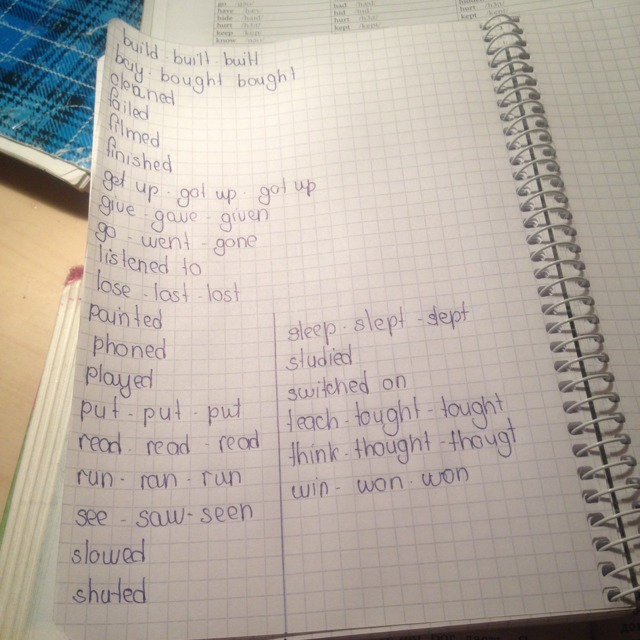 build - built - built
buy - bought bought
cleaned
failed
filmed
finished
get up - got up - got up
give - gave - given
go - went - gone
listened to
lose - lost - lost
painted
phoned
played
put - put - put
read - read - read
run - ran - run
see - saw - seen
slowed
shuted
sleep - slept - slept
studied
switched on
teach - tought - tought
think - thought - thougt
win - won - won